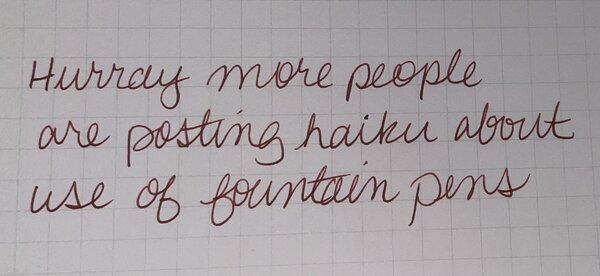 Hurray more people
are posting haiku about
use of fountain pens